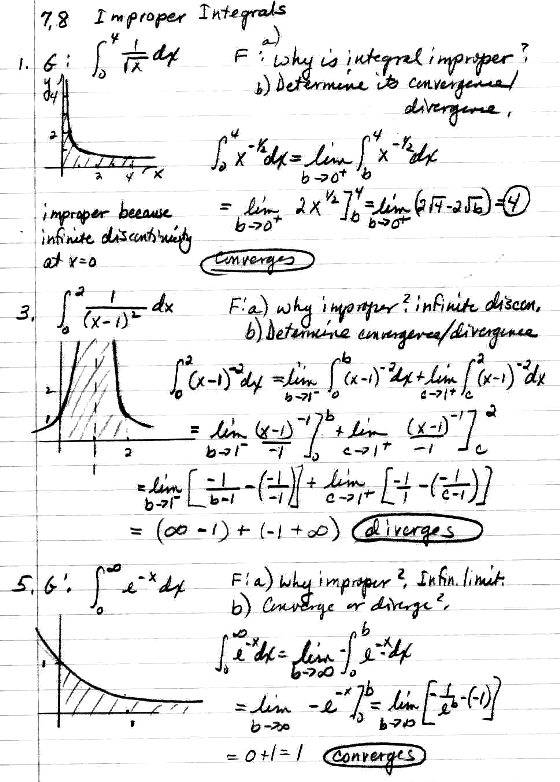 7.8 Improper Integrals
1. G: ∫₀⁴ 1/√x dx F: a) why is integral improper?
b) Determine its convergence/
divergence.
y 4 2 2 4 x
∫₀⁴ x^(-1/2) dx = lim b→0⁺ ∫_b⁴ x^(-1/2) dx
= lim b→0⁺ 2x^(1/2) ]_b⁴ = lim b→0⁺ (2√4 - 2√b) = 4
improper because
infinite discontinuity
at x=0
Converges
3. ∫₀² 1/(x-1)² dx F: a) why improper? infinite discon.
b) Determine convergence/divergence
2 2
∫₀² (x-1)^(-2) dx = lim b→1⁻ ∫₀^b (x-1)^(-2) dx + lim c→1⁺ ∫_c² (x-1)^(-2) dx
= lim b→1⁻ (x-1)^(-1)/-1 ]₀^b + lim c→1⁺ (x-1)^(-1)/-1 ]_c²
= lim b→1⁻ [-1/(b-1) - (-1/-1)] + lim c→1⁺ [-1/1 - (-1/(c-1))]
= (∞ - 1) + (-1 + ∞) diverges
5. G: ∫₀^∞ e^(-x) dx F: a) Why improper?, Infin. limit.
b) Converge or diverge?
∫₀^∞ e^(-x) dx = lim b→∞ -∫₀^b e^(-x) · -dx
= lim b→∞ -e^(-x) ]₀^b = lim b→∞ [-1/e^b - (-1)]
= 0+1 = 1 Converges